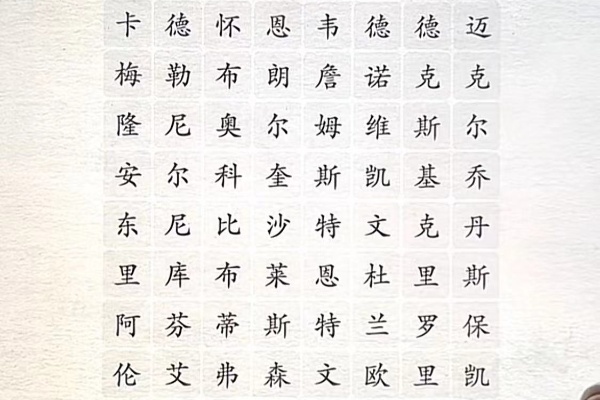 卡德怀恩韦德德迈
梅勒布朗詹诺克克
隆尼奥尔姆维斯尔
安尔科奎斯凯基乔
东尼比沙特文克丹
里库布莱恩杜里斯
阿芬蒂斯特兰罗保
伦艾弗森文欧里凯